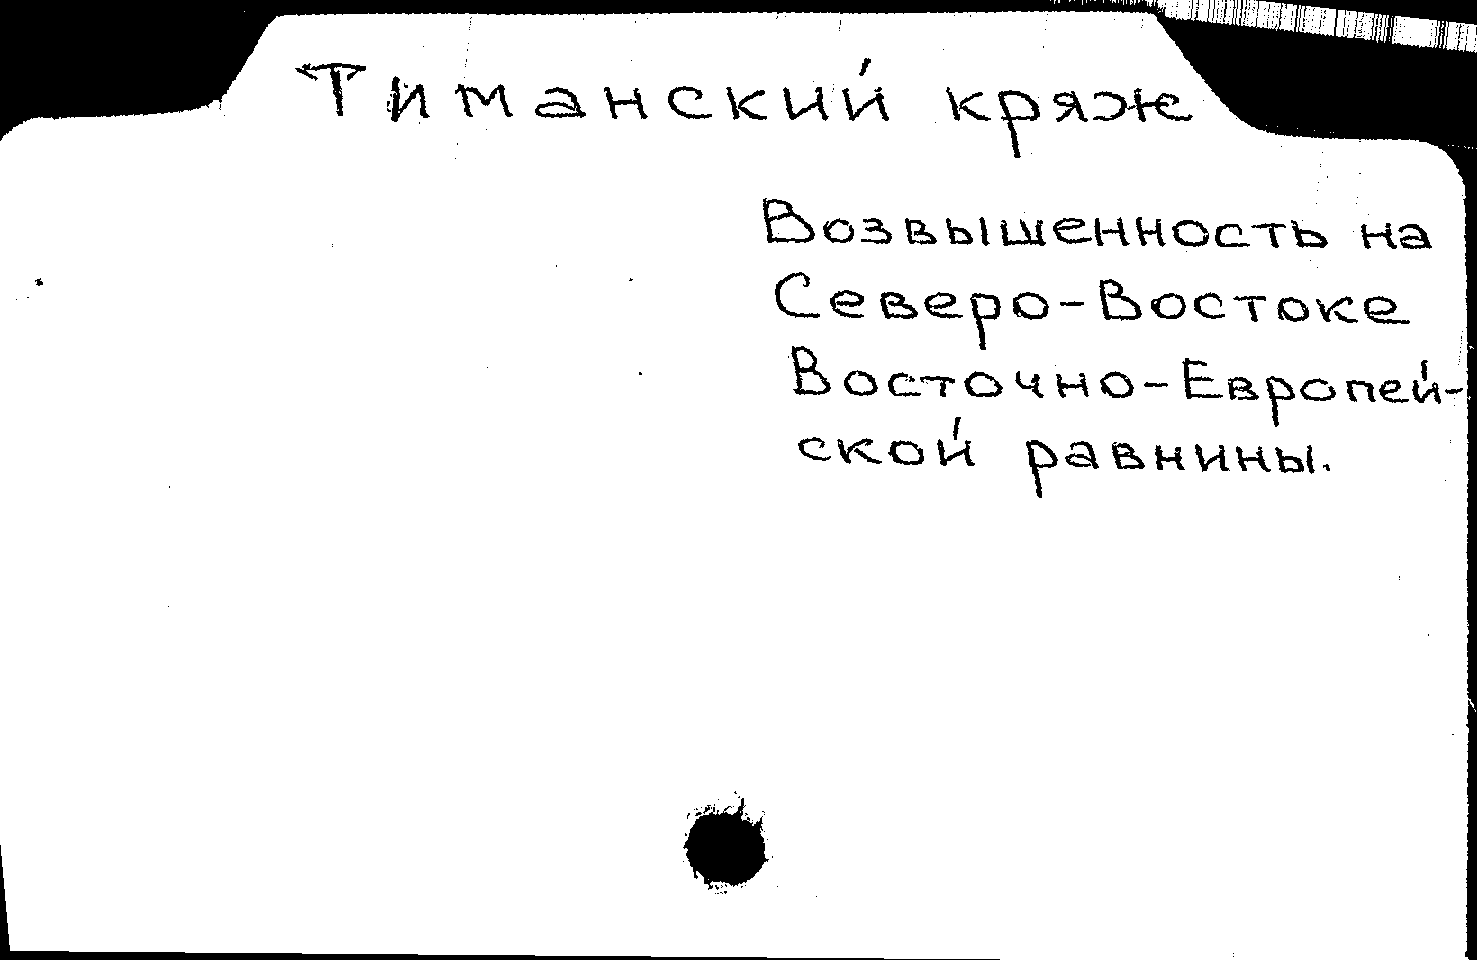 Тиманский кряж
Возвышенность на
Северо-Востоке
Восточно-Европей-
ской равнины.